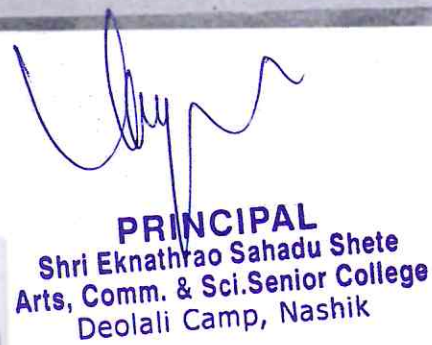 PRINCIPAL
Shri Eknathrao Sahadu Shete
Arts, Comm. & Sci.Senior College
Deolali Camp, Nashik